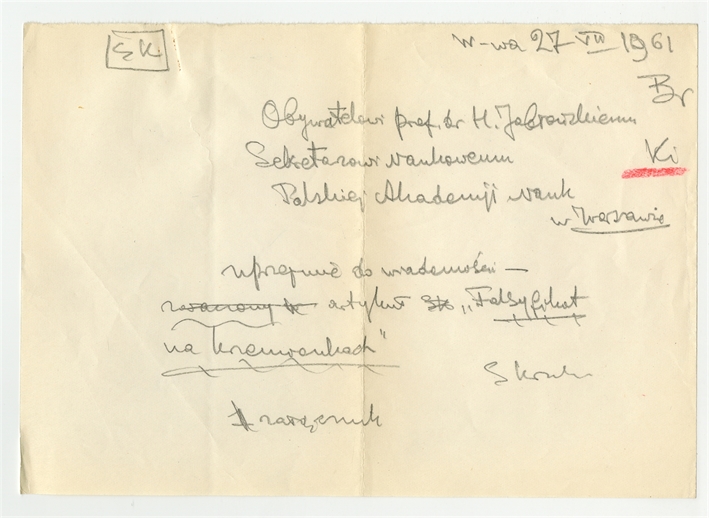 SK
W-wa 27 VII 1961
Br
Obywatelowi prof. dr H. Jabłońskiemu
Sekretarzowi Naukowemu
Ki
Polskiej Akademji Nauk
w Warszawie
uprzejmie do wiadomości —
artykuł „Falsyfikat
na krzemionkach"
1 załącznik